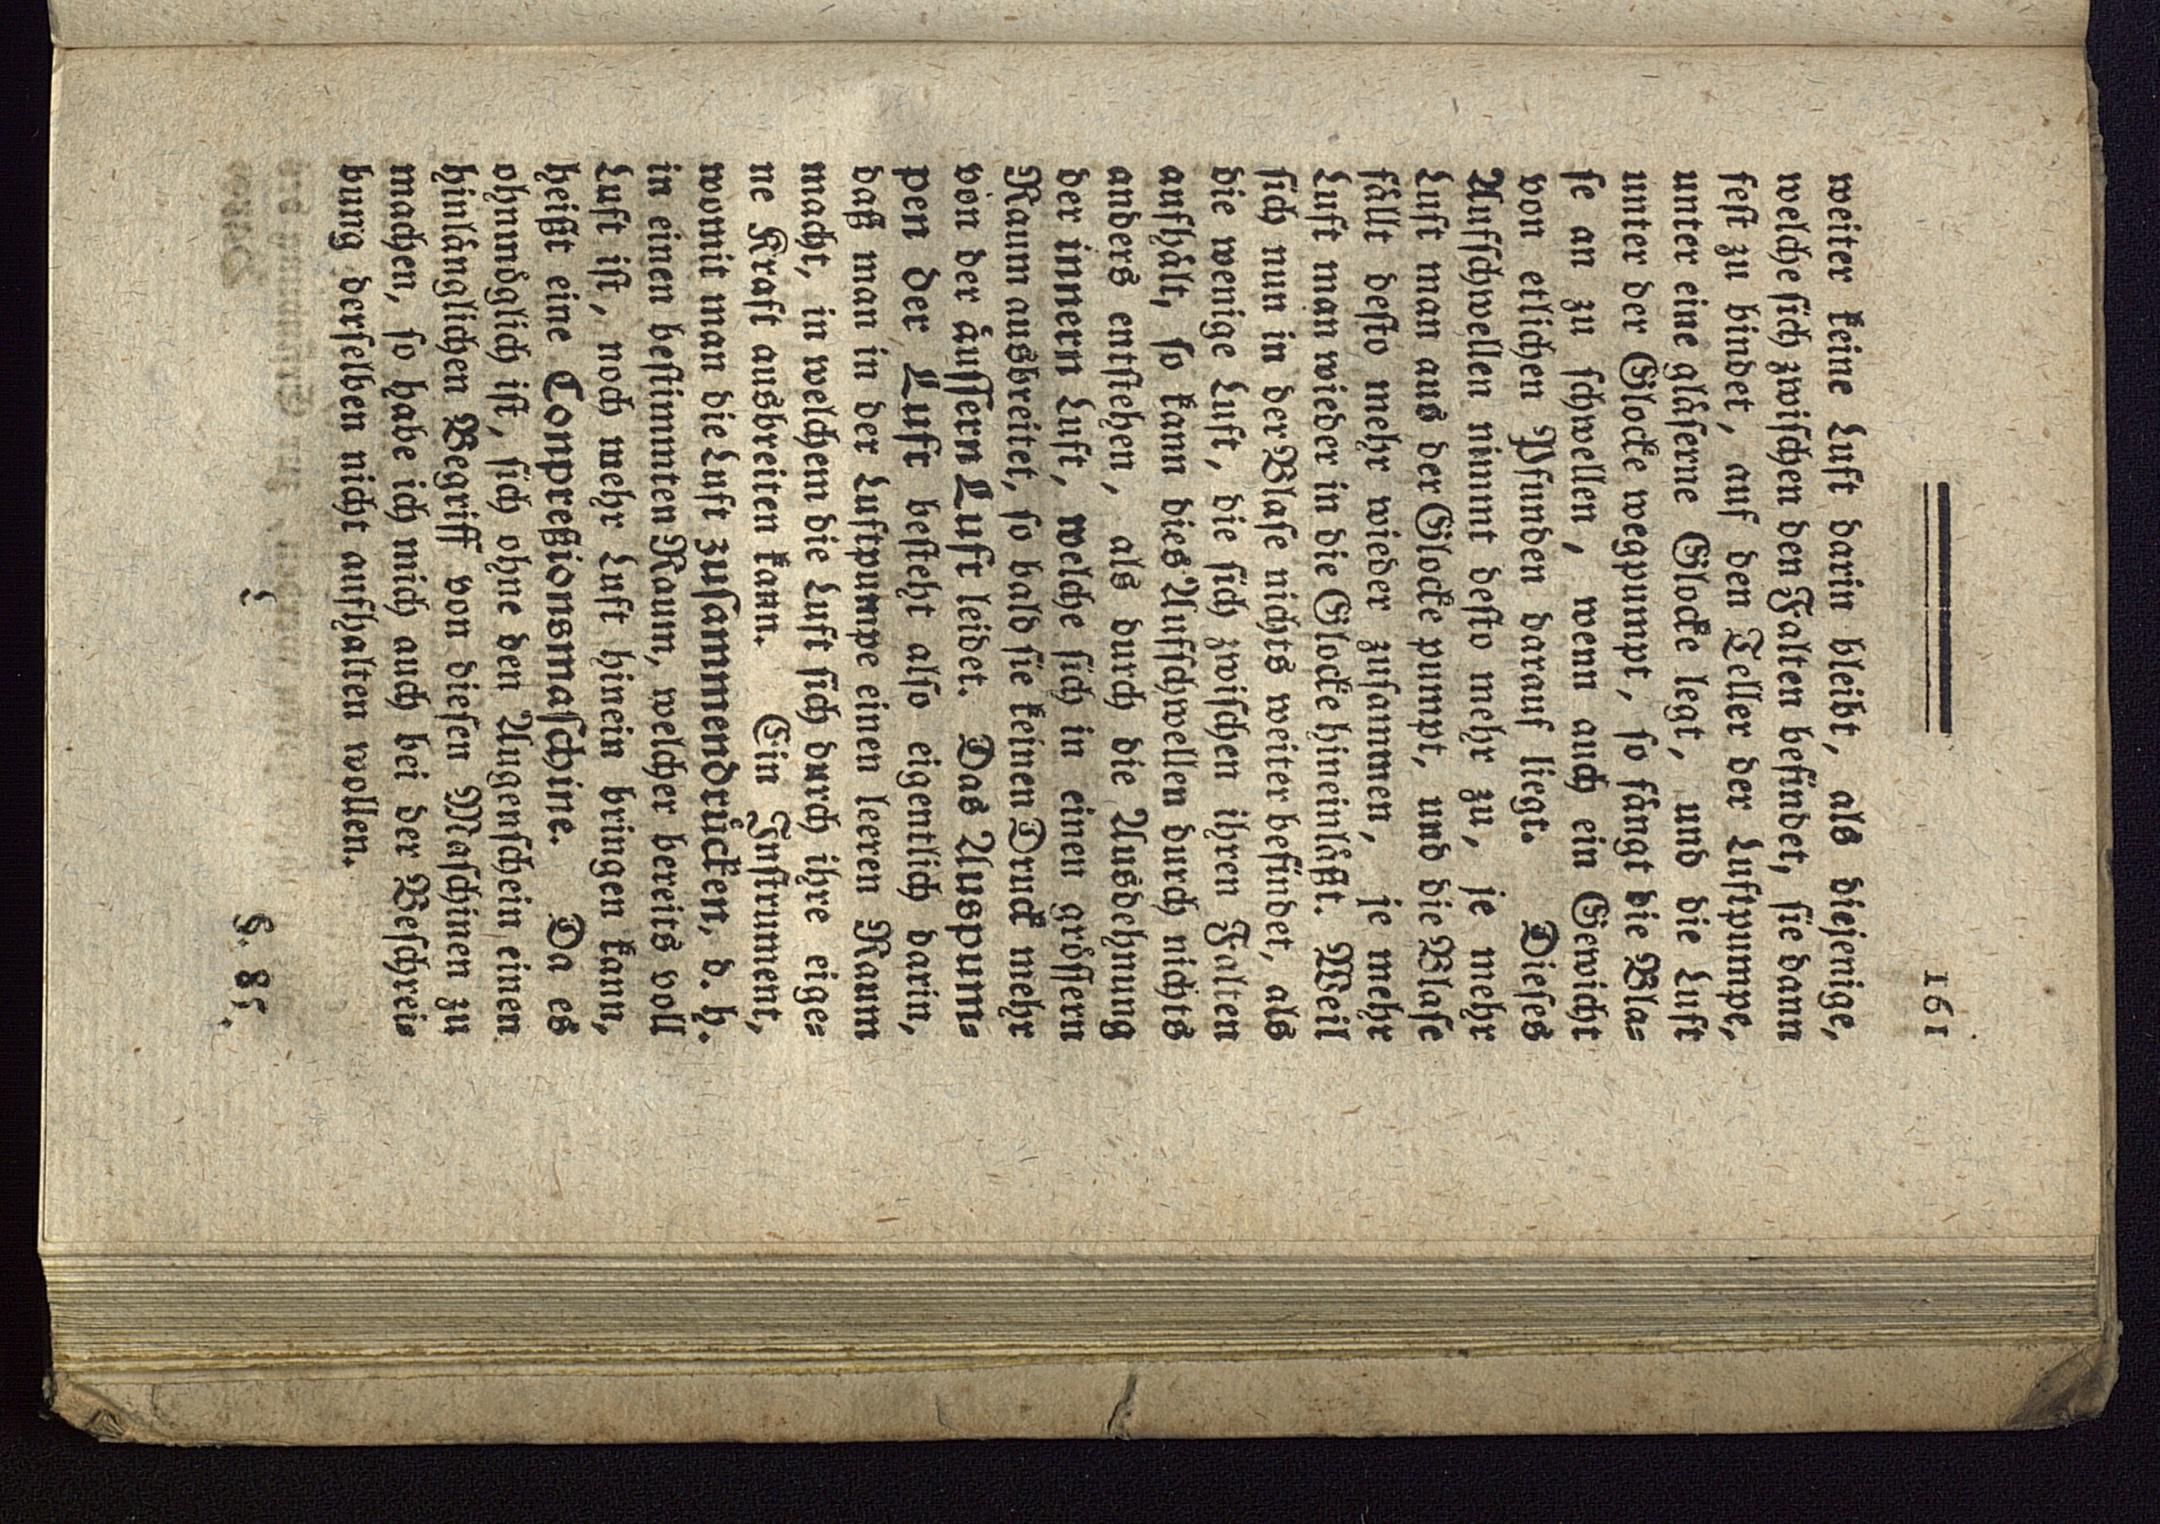 161
weiter keine Luft darin bleibt, als diejenige,
welche ſich zwiſchen den Falten befindet, ſie dann
feſt zu bindet, auf den Teller der Luftpumpe,
unter eine gläſerne Glocke legt, und die Luft
unter der Glocke wegpumpt, ſo fängt die Bla⸗
ſe an zu ſchwellen, wenn auch ein Gewicht
von etlichen Pfunden darauf liegt. Dieſes
Aufſchwellen nimmt deſto mehr zu, je mehr
Luft man aus der Glocke pumpt, und die Blaſe
fällt deſto mehr wieder zuſammen, je mehr
Luft man wieder in die Glocke hineinläßt. Weil
ſich nun in der Blaſe nichts weiter befindet, als
die wenige Luft, die ſich zwiſchen ihren Falten
aufhält, ſo kann dies Aufſchwellen durch nichts
anders entſtehen, als durch die Ausdehnung
der innern Luft, welche ſich in einen gröſſern
Raum ausbreitet, ſo bald ſie keinen Druck mehr
von der äuſſern Luft leidet. Das Auspum⸗
pen der Luft beſteht alſo eigentlich darin,
daß man in der Luftpumpe einen leeren Raum
macht, in welchem die Luft ſich durch ihre eige⸗
ne Kraft ausbreiten kann. Ein Inſtrument,
womit man die Luft zuſammendrücken, d. h.
in einen beſtimmten Raum, welcher bereits voll
Luft iſt, noch mehr Luft hinein bringen kann,
heißt eine Compreßionsmaſchine. Da es
ohnmöglich iſt, ſich ohne den Augenſchein einen
hinlänglichen Begriff von dieſen Maſchinen zu
machen, ſo habe ich mich auch bei der Beſchrei⸗
bung derſelben nicht aufhalten wollen.
§. 85.